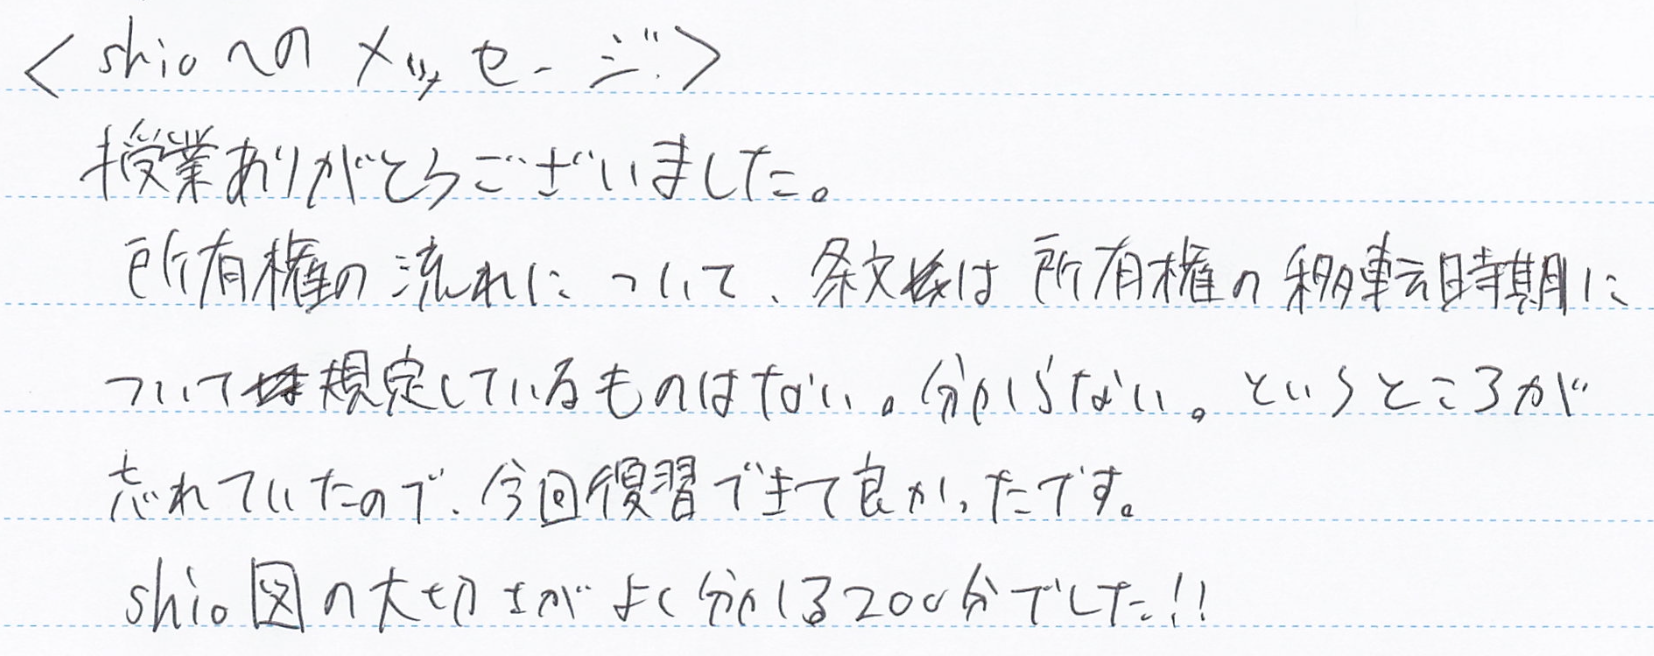 <shioへのメッセージ>
授業ありがとうございました。
所有権の流れについて、条文は所有権の移転時期に
ついて規定しているものはない。分からない。というところが
忘れていたので、今回復習できて良かったです。
shio図の大切さがよく分かる200分でした!!